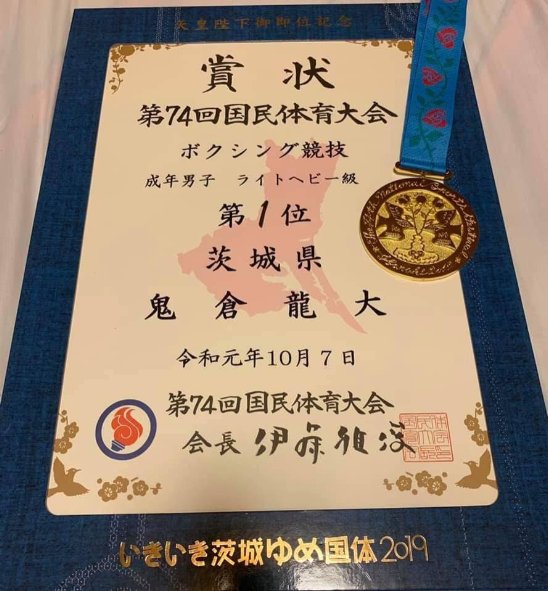 天皇陛下御即位記念
賞状
第74回国民体育大会
ボクシング競技
成年男子 ライトヘビー級
第1位
茨城県
鬼倉龍大
令和元年10月7日
第74回国民体育大会
会長 伊藤雅俊
いきいき茨城ゆめ国体2019